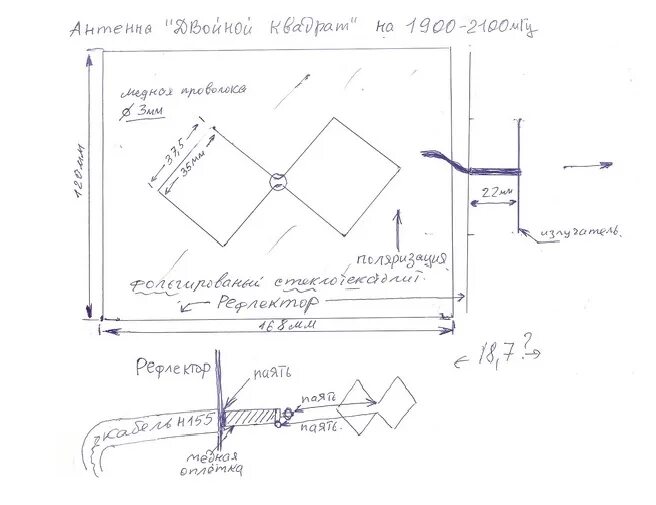 Антенна "Двойной квадрат" на 1900-2100мГц
медная проволока
ϕ 3мм
37,5
35мм
120мм
22мм
излучатель.
поляризация
фольгированый стеклотекстолит.
Рефлектор
168мм
18,7?
Рефлектор
паять
паять
кабель H155
паять.
медная
оплётка